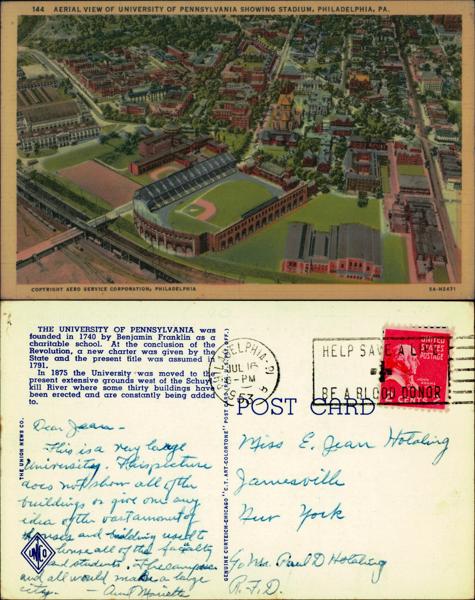 144 AERIAL VIEW OF UNIVERSITY OF PENNSYLVANIA SHOWING STADIUM, PHILADELPHIA, PA.
COPYRIGHT AERO SERVICE CORPORATION, PHILADELPHIA
5A-H2471
THE UNIVERSITY OF PENNSYLVANIA was
founded in 1740 by Benjamin Franklin as a
charitable school. At the conclusion of the
Revolution, a new charter was given by the
State and the present title was assumed in
1791.
In 1875 the University was moved to the
present extensive grounds west of the Schuyl-
kill River where some thirty buildings have
been erected and are constantly being added
to.
THE UNION NEWS CO.
Dear Jean -
This is a very large
university. This picture
does not show all of the
buildings or give one any
idea of the vast amount of
houses and building used to
house all of the faculty
and students. The campus
and all would make a large
city. - Aunt
UNCO
GENUINE CURTEICH-CHICAGO "C.T. ART-COLORTONE" POST CARD
PHILADELPHIA
JUL 16
PM
1953
HELP SAVE A
BE A BLOOD DONOR
UNITED
STATES
POSTAGE
CENTS
POST CARD
Miss E. Jean Hotaling
Jamesville
New York
c/o Mr. Paul D Hotaling
R.F.D.